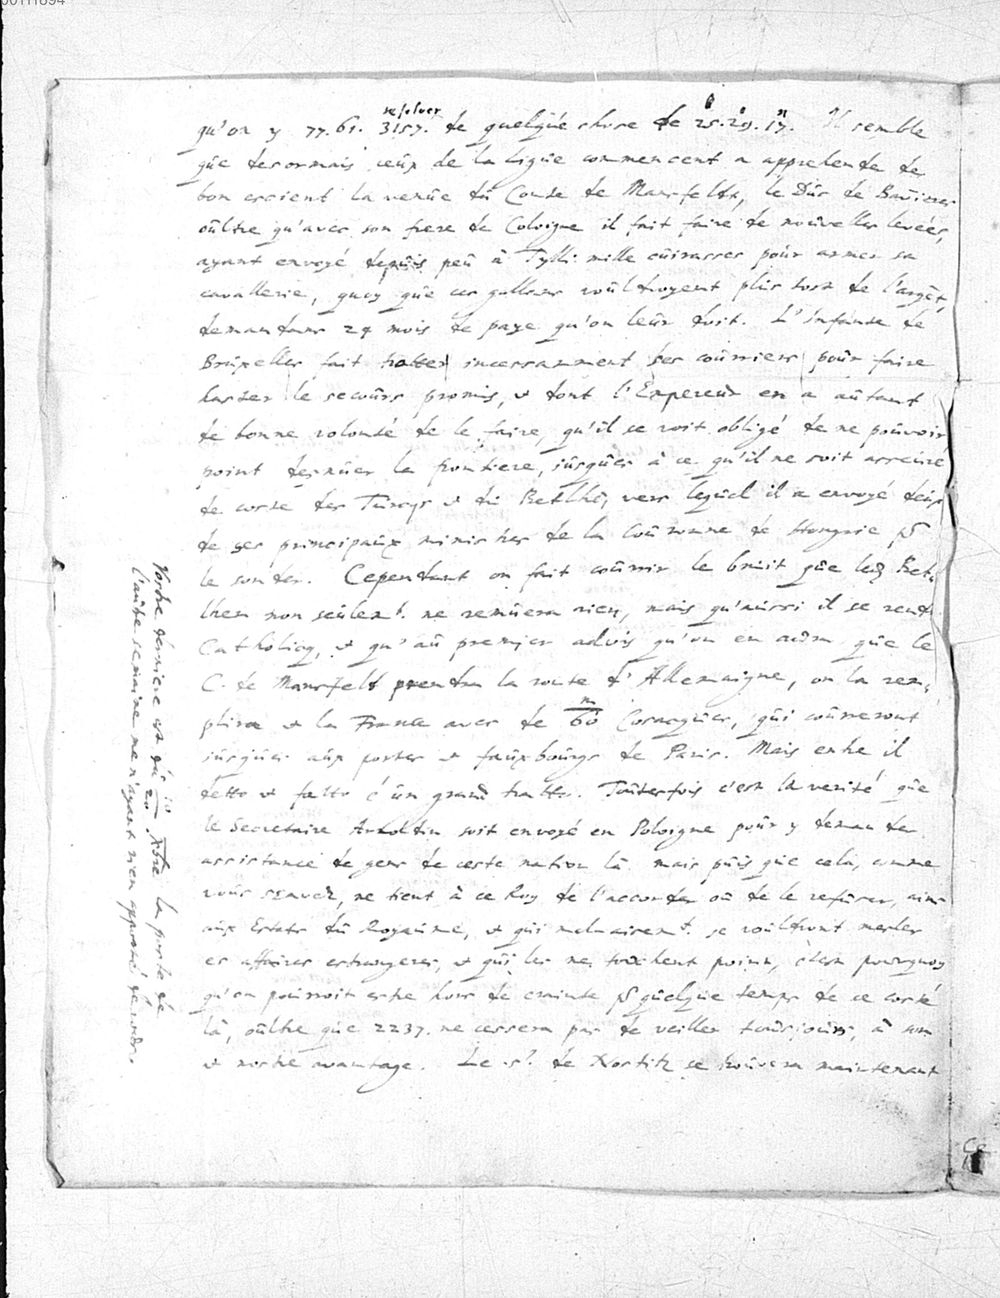 resolver
qu'on y 77. 61. 3157. de quelque chose de 25. 29. 17. Il semble
que desormais ceux de la ligue commencent a apprehender de
bon escient la venue du Conte de Mansfeldt, le Duc de Bavieres
oultre qu'avec son frere de Coloigne il fait faire de nouvelles levées,
ayant envoyé depuis peu à Tylli mille cuirasses pour armer sa
cavallerie, quoy que ces gallans voul droyent plus tost de l'argēt,
demandans 24 mois de paye qu'on leur doit. L'Infante de
Bruxelles fait trotter incessamment ses courriers pour faire
haster le secours promis, et dont l'Empereur en a autant
de bonne volonté de le faire, qu'il se voit obligé de ne pouvoir
point desnuer la frontiere, jusques à ce qu'il ne soit asseuré
de coste des Turcqs et du Bethlē, vers lequel il a envoyé deux
de ses principaux ministres de la Couronne de Hongrie p̄
le sonder. Cependant on fait courrir le bruit que led. Beth
lhem non seulem.t ne remuera rien, mais qu'aussi il se rendra
Catholicq, et qu'au premier advis qu'on en aura que le
C. de Mansfelt prendra la route d'Allemaigne, on la rem,
plira et la France avec de 60 m Cosacques, qui courreront
jusques aux portes et fauxbourgs de Paris. Mais entre il
detto et fatto è un grand tratto. Toutesfois c'est la verité que
le Secretaire Arnoldin soit envoyé en Poloigne pour y demander
assistance de gens de ceste nation là mais puis que cela, comme
vous sçavez, ne tient à ce Roy de l'accorder ou de le refuser, ains
aux Estats du Royaume, et qui malaisem.t se voul dront mesler
es affaires estrangeres, et qui les ne touchent point, c'est pourquoy
qu'on pourroit estre hors de crainte p̄ quelque temps de ce costé
là, oultre que 2237. ne cessera pas de veiller tousjours à son
et nostre avantage. Le S.r de Nostitz se trouvera maintenant
Vostre derniere est du 10/20 Xbre la poste de
l'autre semaine ne m'ayant rien apporté de vous.
Ce